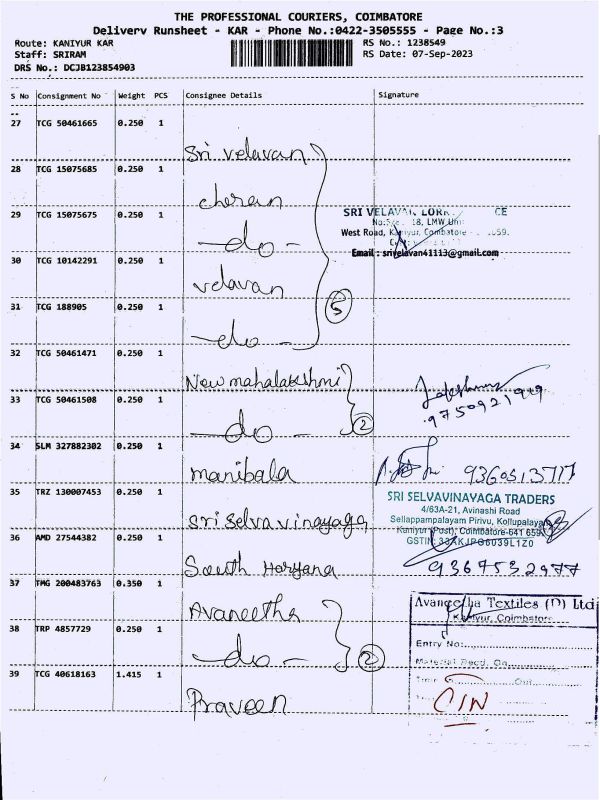 THE PROFESSIONAL COURIERS, COIMBATORE
Delivery Runsheet - KAR - Phone No.:0422-3505555 - Page No.:3
Route: KANIYUR KAR RS No.: 1238549
Staff: SRIRAM RS Date: 07-Sep-2023
DRS No.: DCJB123854903
S No Consignment No Weight PCS Consignee Details Signature
27 TCG 50461665 0.250 1
Sri velavan
28 TCG 15075685 0.250 1
cheran
29 TCG 15075675 0.250 1
SRI VELAVAN LORRY CE
- do -
18, LMW
West Road, Kaniyur, Coimbatore
30 TCG 10142291 0.250 1
Email : srivelavan41113@gmail.com
velavan
31 TCG 188905 0.250 1
5
- do -
32 TCG 50461471 0.250 1
New mahalakshmi
33 TCG 50461508 0.250 1
9750921949
- do - 2
34 SLM 327882302 0.250 1
manibala 9360513717
35 TRZ 130007453 0.250 1
SRI SELVAVINAYAGA TRADERS
4/63A-21, Avinashi Road
Sri Selvavinayaga
Sellappampalayam Pirivu, Kollupalayam
Kaniyur (Post), Coimbatore-641 659
36 AMD 27544382 0.250 1
GSTIN:
South Haryana 9367532977
37 TMG 200483763 0.350 1
Avaneetha
Avaneetha Textiles (P) Ltd
Kaniyur, Coimbatore
38 TRP 4857729 0.250 1
Entry No:
- do - 2
Material Recd. On
39 TCG 40618163 1.415 1
Out
Praveen